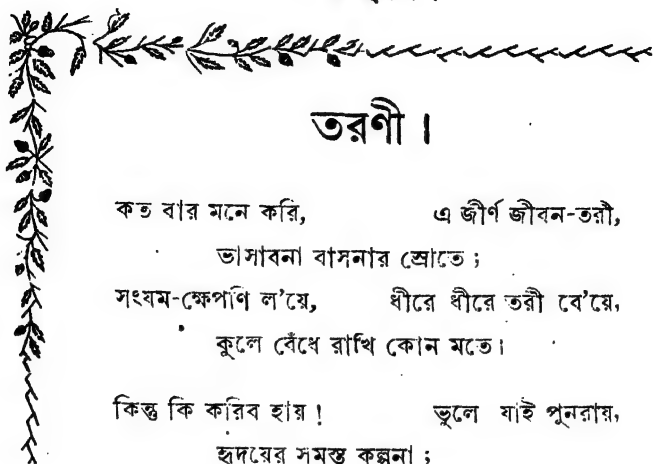 তরণী।
কত বার মনে করি, এ জীর্ণ জীবন-তরী,
ভাসাবনা বাসনার স্রোতে ;
সংযম-ক্ষেপণি ল'য়ে, ধীরে ধীরে তরী বে'য়ে,
কূলে বেঁধে রাখি কোন মতে।
কিন্তু কি করিব হায় ! ভুলে যাই পুনরায়,
হৃদয়ের সমস্ত কল্পনা ;